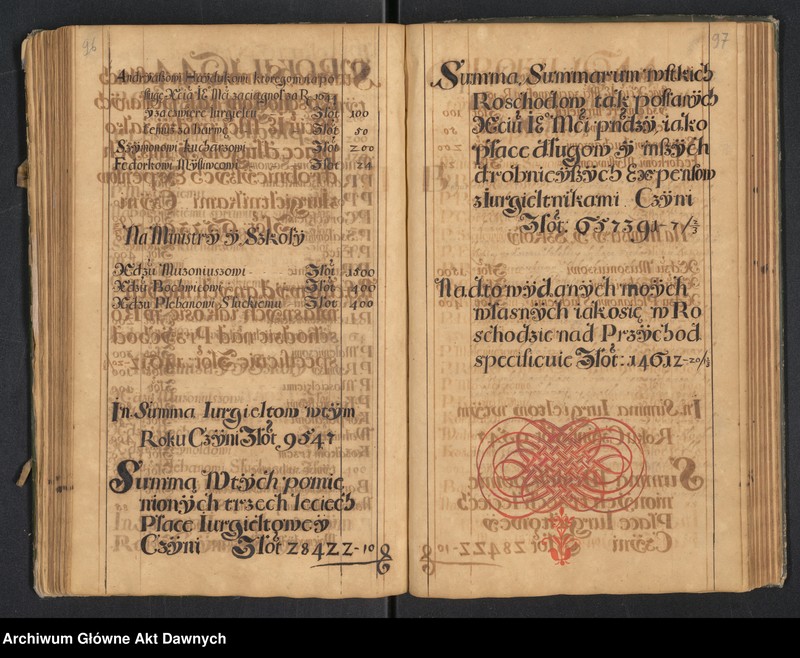 96
Andryaszowi Haydukowi ktoregom na po
sługę Xcia JE Mci zaciągnął na R. 1641
y za cwierc Iurgieltu Złot 100
temuż za barwę Złot 50
Szymonowi kucharzowi Złot 200
Fedorkowi Myśliwcowi Złot 24
Na Ministry y Szkoły
Xdzu Muzoniussowi Złot 1500
Xdzu Bochwicowi Złot 400
Xdzu Plebanowi Słuckiemu Złot 400
In Summa Iurgieltow wtym
Roku Czÿni Złot 9547
Summa Wtÿch pomie
nionÿch trzech leciech
Płace Iurgieltoweÿ
Czÿni Złot 28422-10
97
Summa Summarum wszÿtkich
Roschodow tak possanÿch
Xciu JE Mci pndzÿ iako
płace długow ÿ inszÿch
drobnieÿszÿch Expensow
z Iurgieltnikami Czÿni
Złot: 657391-7/½
Nadto wÿdanÿch moÿch
własnÿch iako się w Ro
schodzie nad Przÿchod
specificuie Złot: 14612-20/½
Archiwum Główne Akt Dawnych